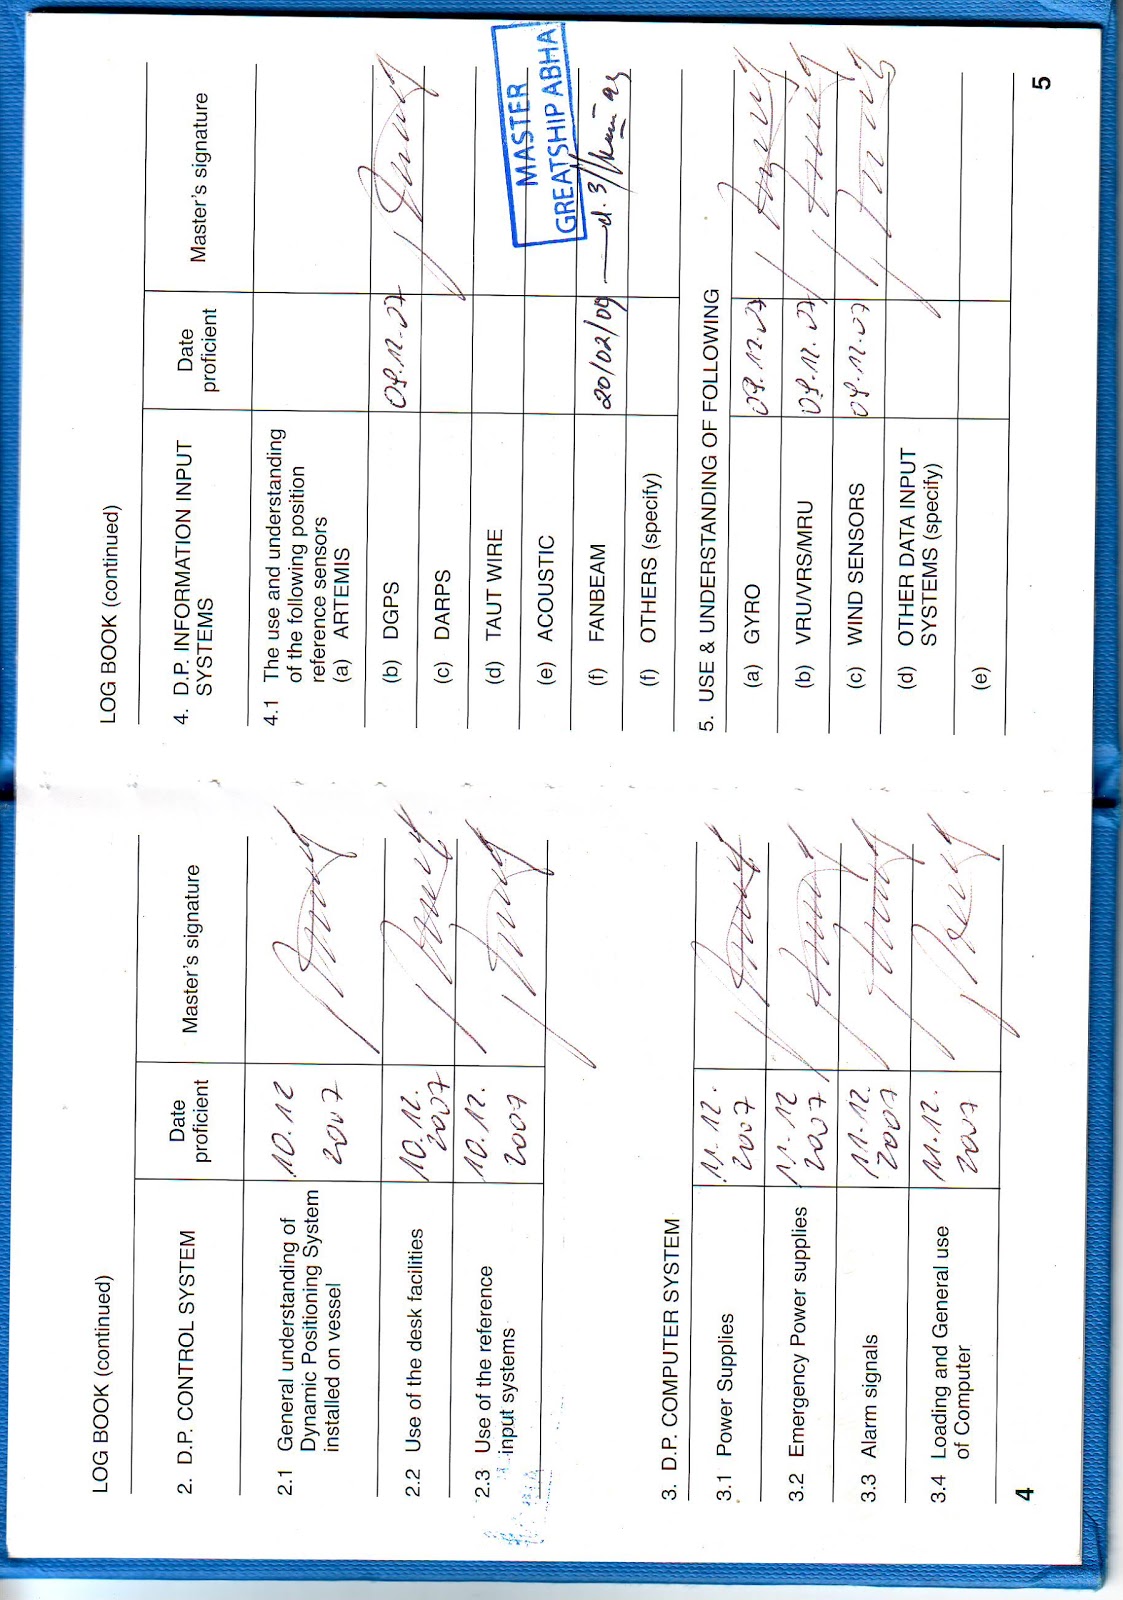 LOG BOOK (continued)
2. D.P. CONTROL SYSTEM
Date proficient
Master's signature
2.1 General understanding of
Dynamic Positioning System
installed on vessel
10.12
2007
2.2 Use of the desk facilities
10.12.
2007
2.3 Use of the reference
input systems
10.12.
2007
3. D.P. COMPUTER SYSTEM
3.1 Power Supplies
11.12.
2007
3.2 Emergency Power supplies
11.12
2007
3.3 Alarm signals
11.12.
2007
3.4 Loading and General use
of Computer
11.12.
2007
4
LOG BOOK (continued)
4. D.P. INFORMATION INPUT
SYSTEMS
Date
proficient
Master's signature
4.1 The use and understanding
of the following position
reference sensors
(a) ARTEMIS
(b) DGPS
09.12.07
(c) DARPS
(d) TAUT WIRE
(e) ACOUSTIC
MASTER
GREATSHIP ABHA
(f) FANBEAM
20/02/09
(f) OTHERS (specify)
5. USE & UNDERSTANDING OF FOLLOWING
(a) GYRO
09.12.07
(b) VRU/VRS/MRU
09.12.07
(c) WIND SENSORS
09.12.07
(d) OTHER DATA INPUT
SYSTEMS (specify)
(e)
5